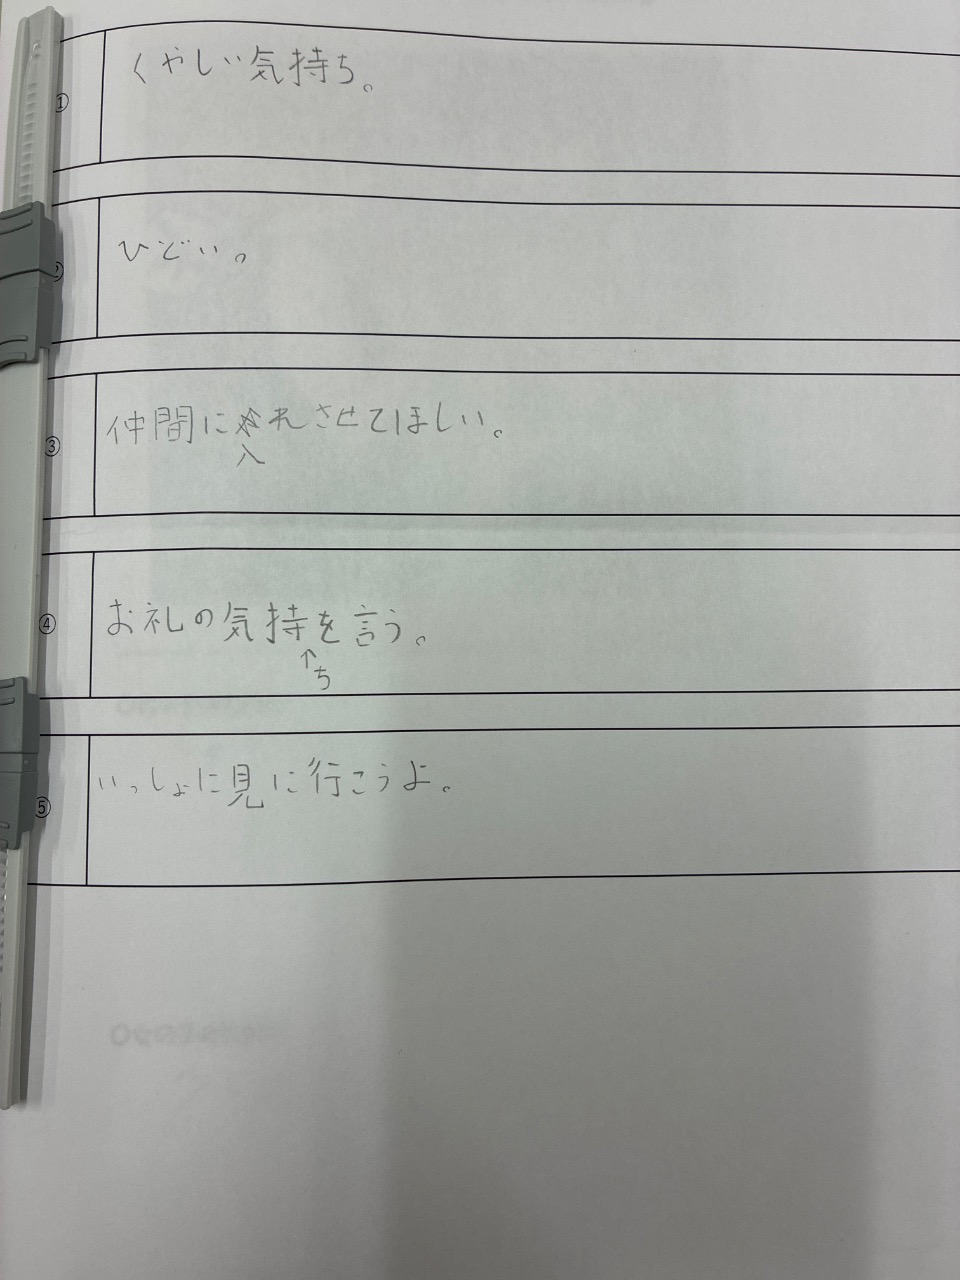 ① くやしい気持ち。
② ひどい。
③ 仲間に入れさせてほしい。
④ お礼の気持ちを言う。
⑤ いっしょに見に行こうよ。